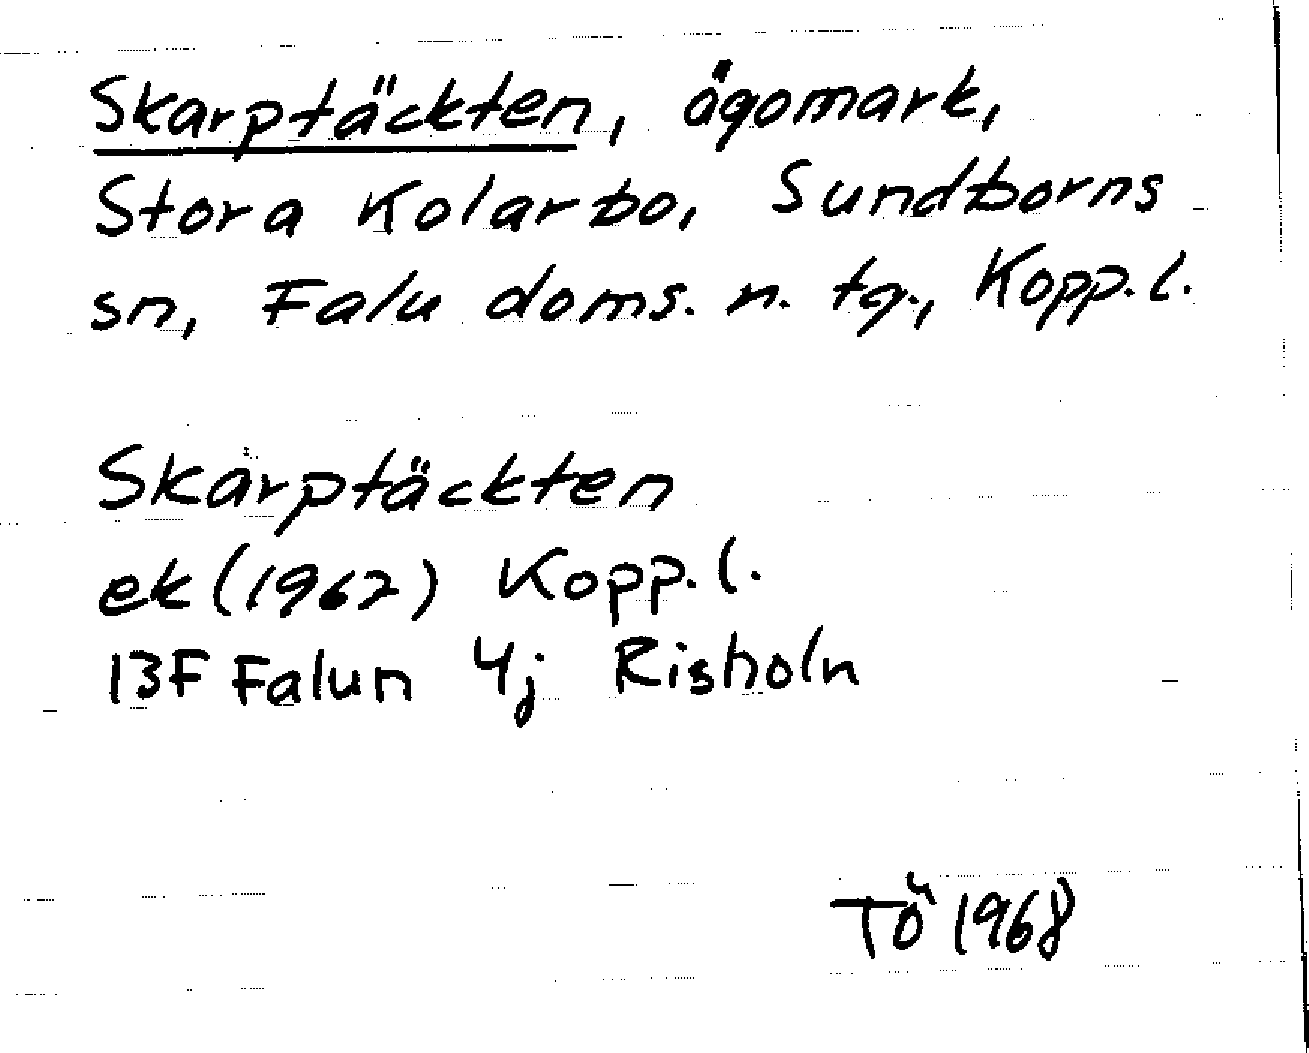 Skarptäckten, ägomark,
Stora Kolarbo, Sundborns
sn, Falu doms. n. tg., Kopp.l.
Skarptäckten
ek (1962) Kopp.l.
13F Falun 4j Risholn
TÖ 1968